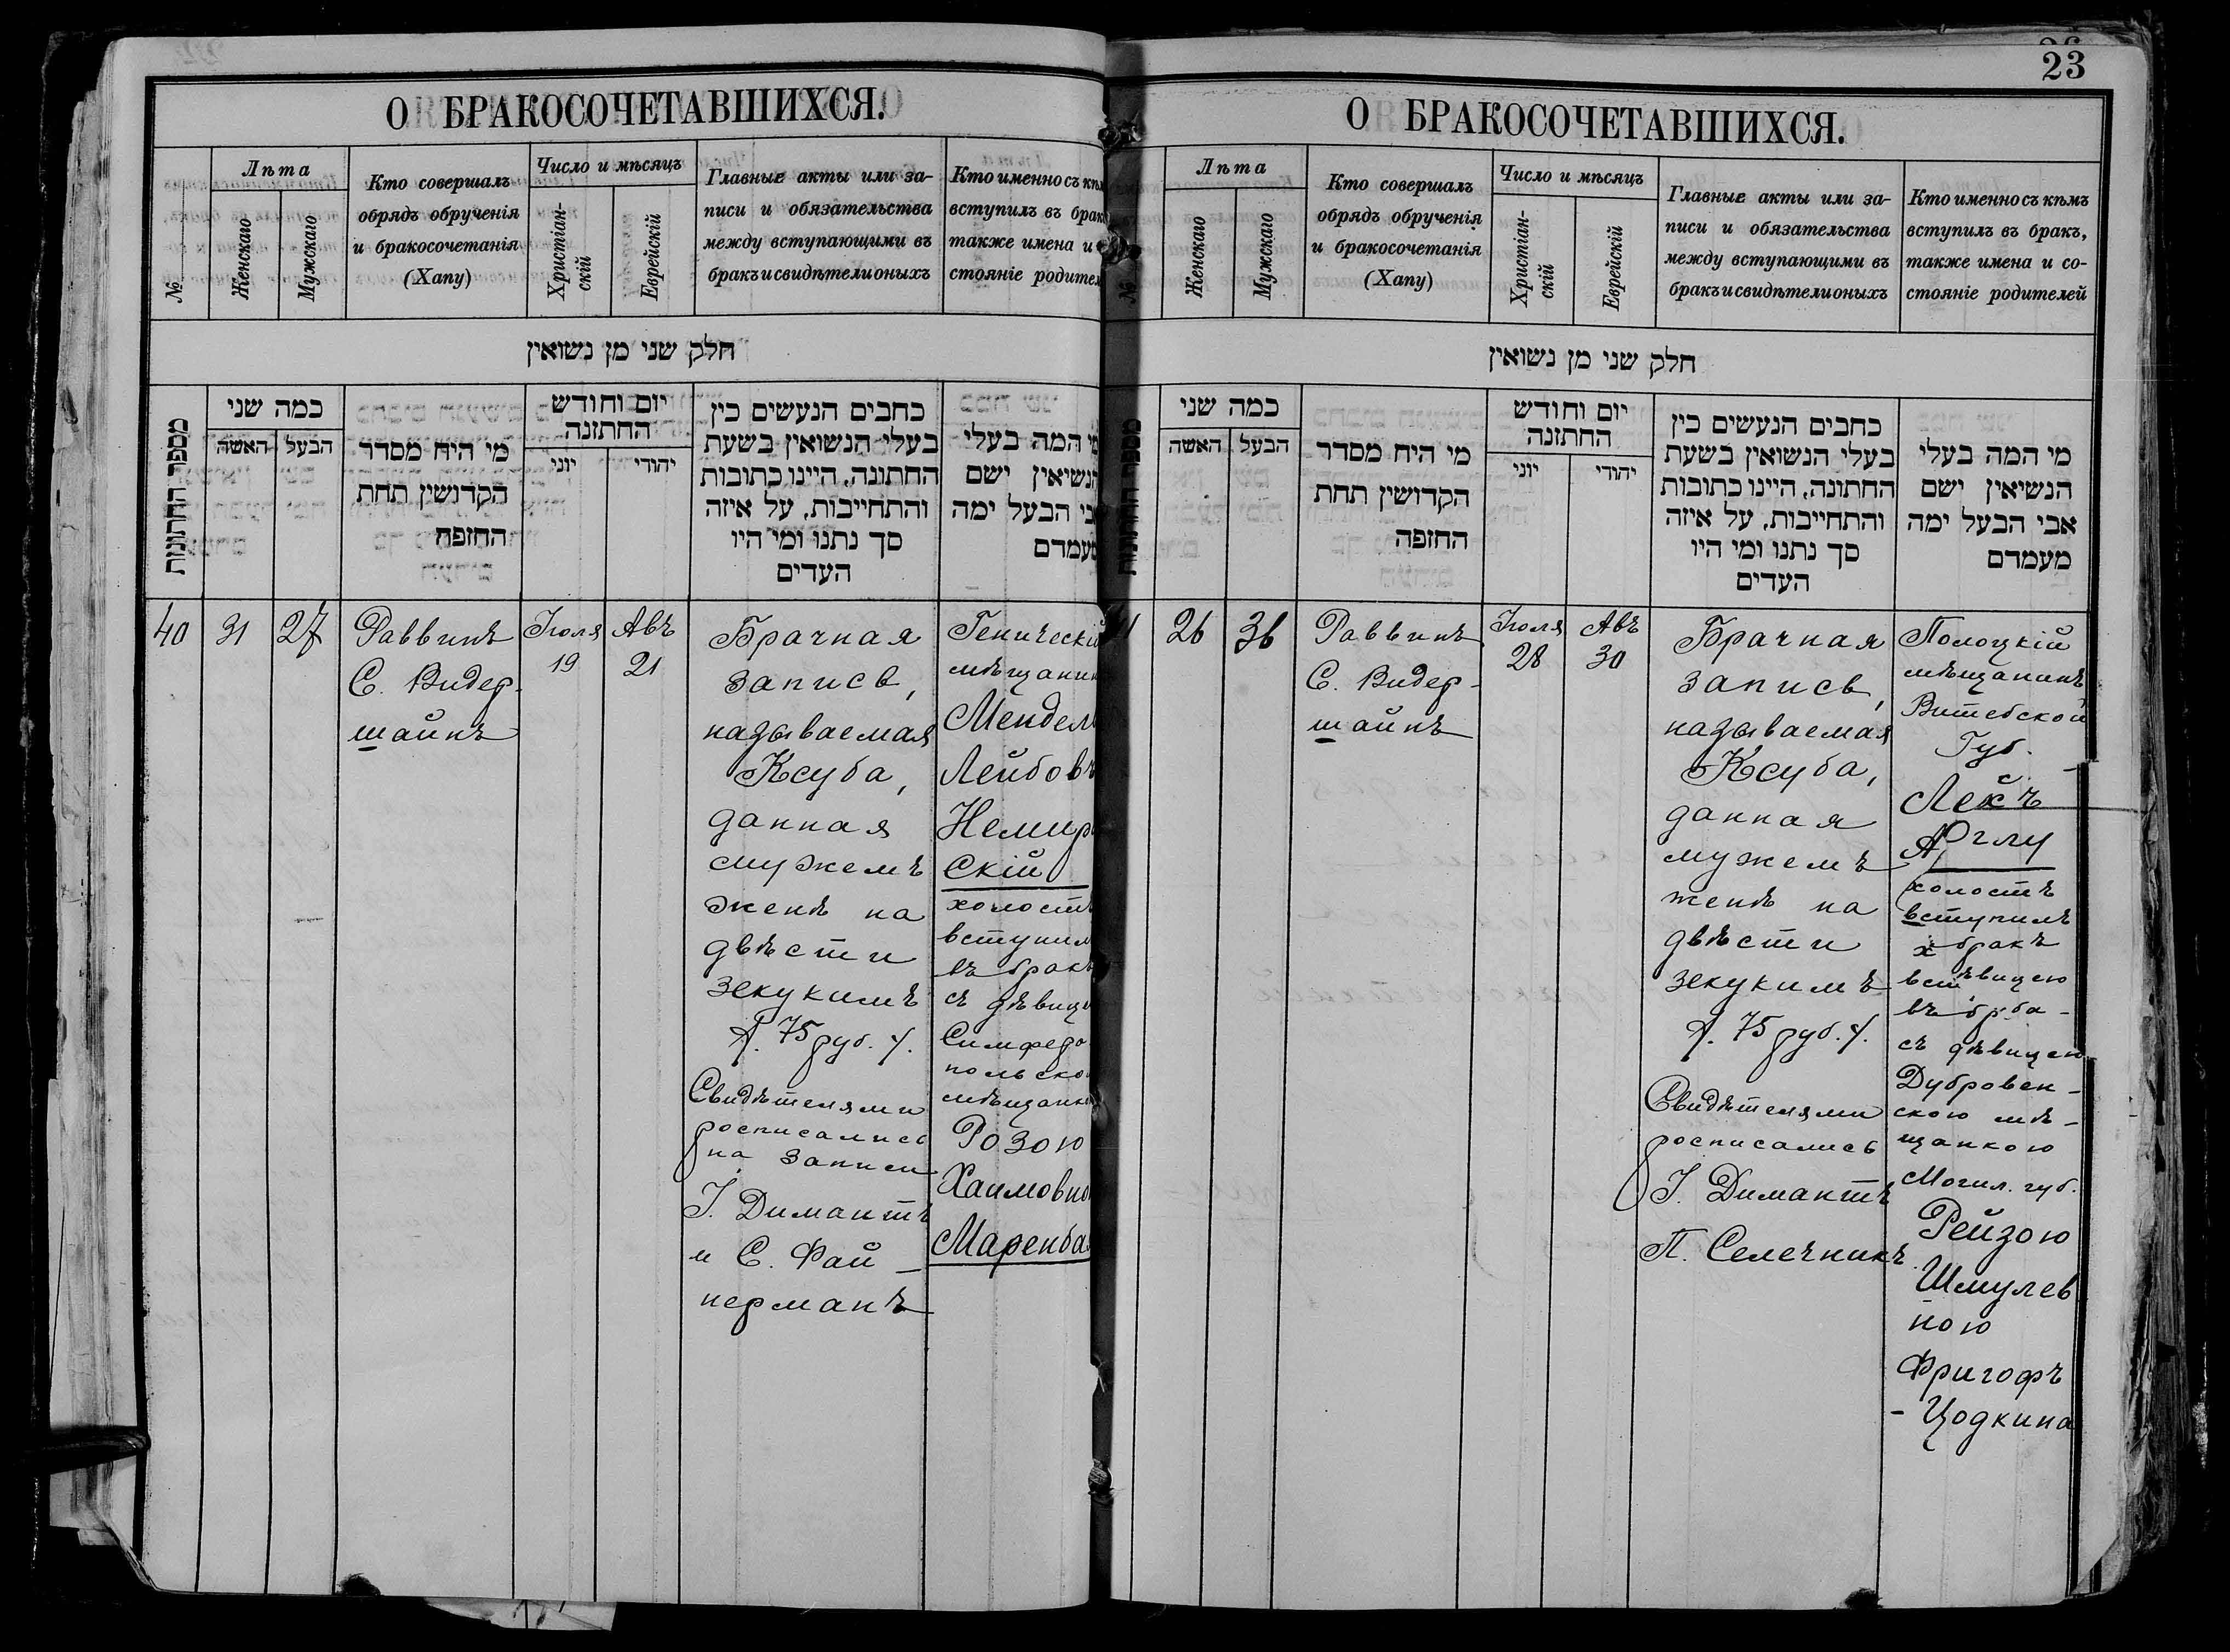 О БРАКОСОЧЕТАВШИХСЯ.
№
Лѣта
Женскаго
Мужскаго
Кто совершалъ
обрядъ обрученія
и бракосочетанія
(Хапу)
Число и мѣсяцъ
Христіан-
скій
Еврейскій
Главные акты или за-
писи и обязательства
между вступающими въ
бракъ и свидѣтели оныхъ
Кто именно съ кѣмъ
вступилъ въ брак
также имена и
стояніе родител
חלק שני מן נשואין
מספר החתונות
כמה שני
האשה
הבעל
מי היה מסדר
הקדושין תחת
החופה
יום וחודש
החתונה
יוני
יהודי
כתבים הנעשים בין
בעלי הנשואין בשעת
החתונה, היינו כתובות
והתחייבות, על איזה
סך נתנו ומי היו
העדים
מי המה בעלי
הנשיאין ישם
בי הבעל ימה
מעמדם
40
31
27
Раввинъ
С. Видер-
шайнъ
Іюля
19
Авъ
21
Брачная
запись,
называемая
Ксуба,
данная
мужемъ
женѣ на
двѣсти
зекукимъ
/. 75 руб. /.
Свидѣтелями
росписались
на записи
І. Димантъ
и С. Фай-
нерманъ
Геническій
мѣщанин
Мендель
Лейбовъ
Немиро
скій
холостъ
вступил
въ бракъ
съ дѣвице
Симферо
польско
мѣщанк
Розою
Хаимовно
Маренба
23
О БРАКОСОЧЕТАВШИХСЯ.
№
Лѣта
Женскаго
Мужскаго
Кто совершалъ
обрядъ обрученія
и бракосочетанія
(Хапу)
Число и мѣсяцъ
Христіан-
скій
Еврейскій
Главные акты или за-
писи и обязательства
между вступающими въ
бракъ и свидѣтели оныхъ
Кто именно съ кѣмъ
вступилъ въ бракъ,
также имена и со-
стояніе родителей
חלק שני מן נשואין
כמה שני
האשה
הבעל
מי היה מסדר
הקדושין תחת
החופה
יום וחודש
החתונה
יוני
יהודי
כתבים הנעשים בין
בעלי הנשואין בשעת
החתונה, היינו כתובות
והתחייבות, על איזה
סך נתנו ומי היו
העדים
מי המה בעלי
הנשיאין ישם
אבי הבעל ימה
מעמדם
26
36
Раввинъ
С. Видер-
шайнъ
Іюля
28
Авъ
30
Брачная
запись,
называемая
Ксуба,
данная
мужемъ
женѣ на
двѣсти
зекукимъ
/. 75 руб. /.
Свидѣтелями
росписались
І. Димантъ
П. Селечникъ
Полоцкій
мѣщанинъ
Витебской
Губ.
холостъ
вступилъ
бракъ
съ дѣвицею
Дубровен-
скою мѣ-
щанкою
Могил. губ.
Рейзою
Шмулев
ною
Фригофъ
- Цодкина